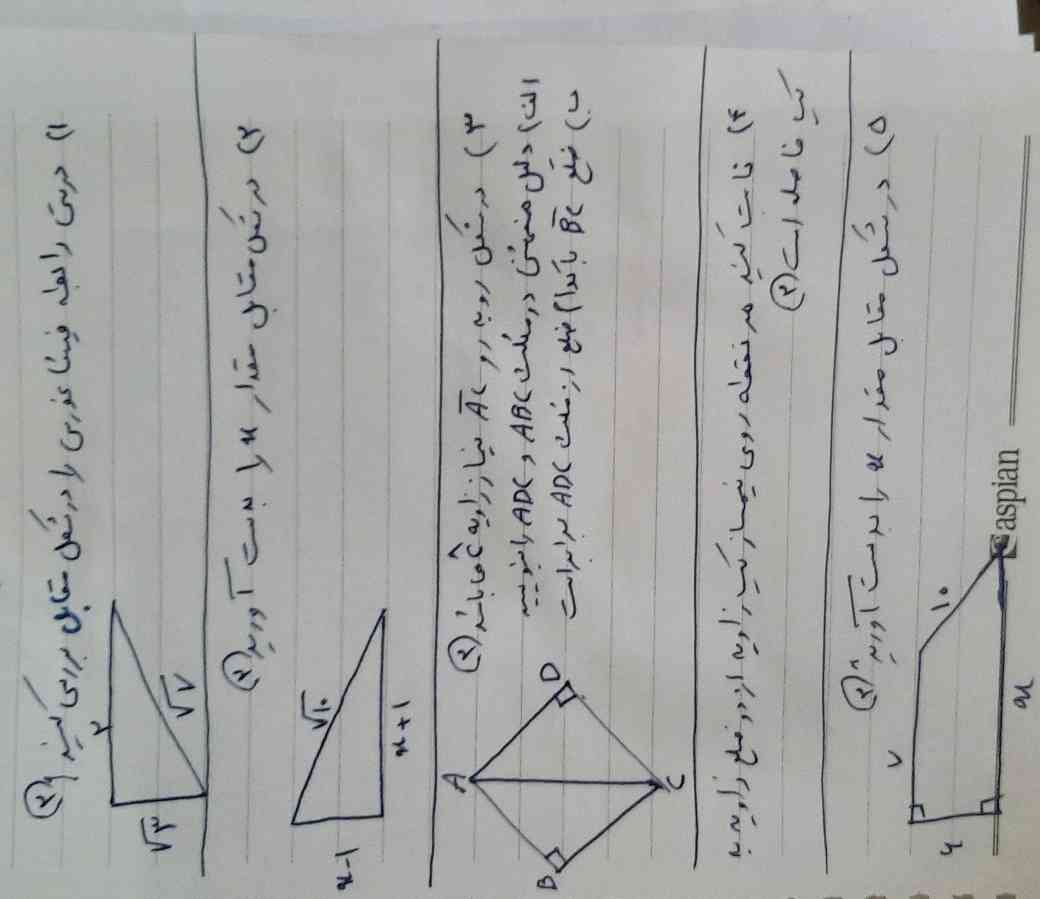 ۱) درستی رابطه فیثاغورس را در شکل مقابل بررسی کنید. (۲)
۲
√۳
√۷
۲) در شکل مقابل مقدار x را بدست آورید (۲)
√۱۰
x-1
x+1
۳) در شکل روبه رو AC نیمساز زاویه C می باشد (۲)
الف) دلیل همنهشتی دو مثلث ABC و ADC را بنویسید
ب) ضلع BC با کدام ضلع از مثلث ADC برابر است
A
B
D
C
۴) ثابت کنید هر نقطه روی نیمساز یک زاویه از دو ضلع زاویه به
یک فاصله است (۲)
۵) در شکل مقابل مقدار x را بدست آورید (۲)
۷
۱۰
۶
x
Caspian